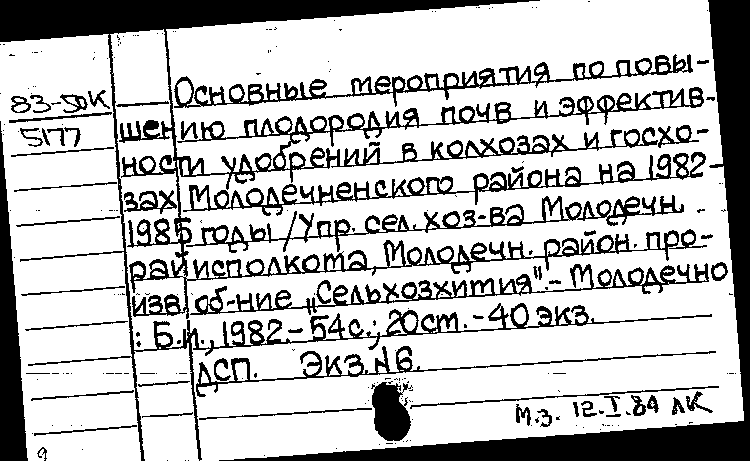 83-50К
5177
Основные мероприятия по повы-
шению плодородия почв и эффектив-
ности удобрений в колхозах и госхо-
зах Молодечненского района на 1982-
1985 годы /Упр. сел. хоз-ва Молодечн.
райисполкома, Молодечн. район. про-
изв. об-ние „Сельхозхимия".- Молодечно
: Б.и., 1982.- 54с.; 20см. - 40 экз.
ДСП. Экз. N6.
М.З. 12.I.84 ЛК
9